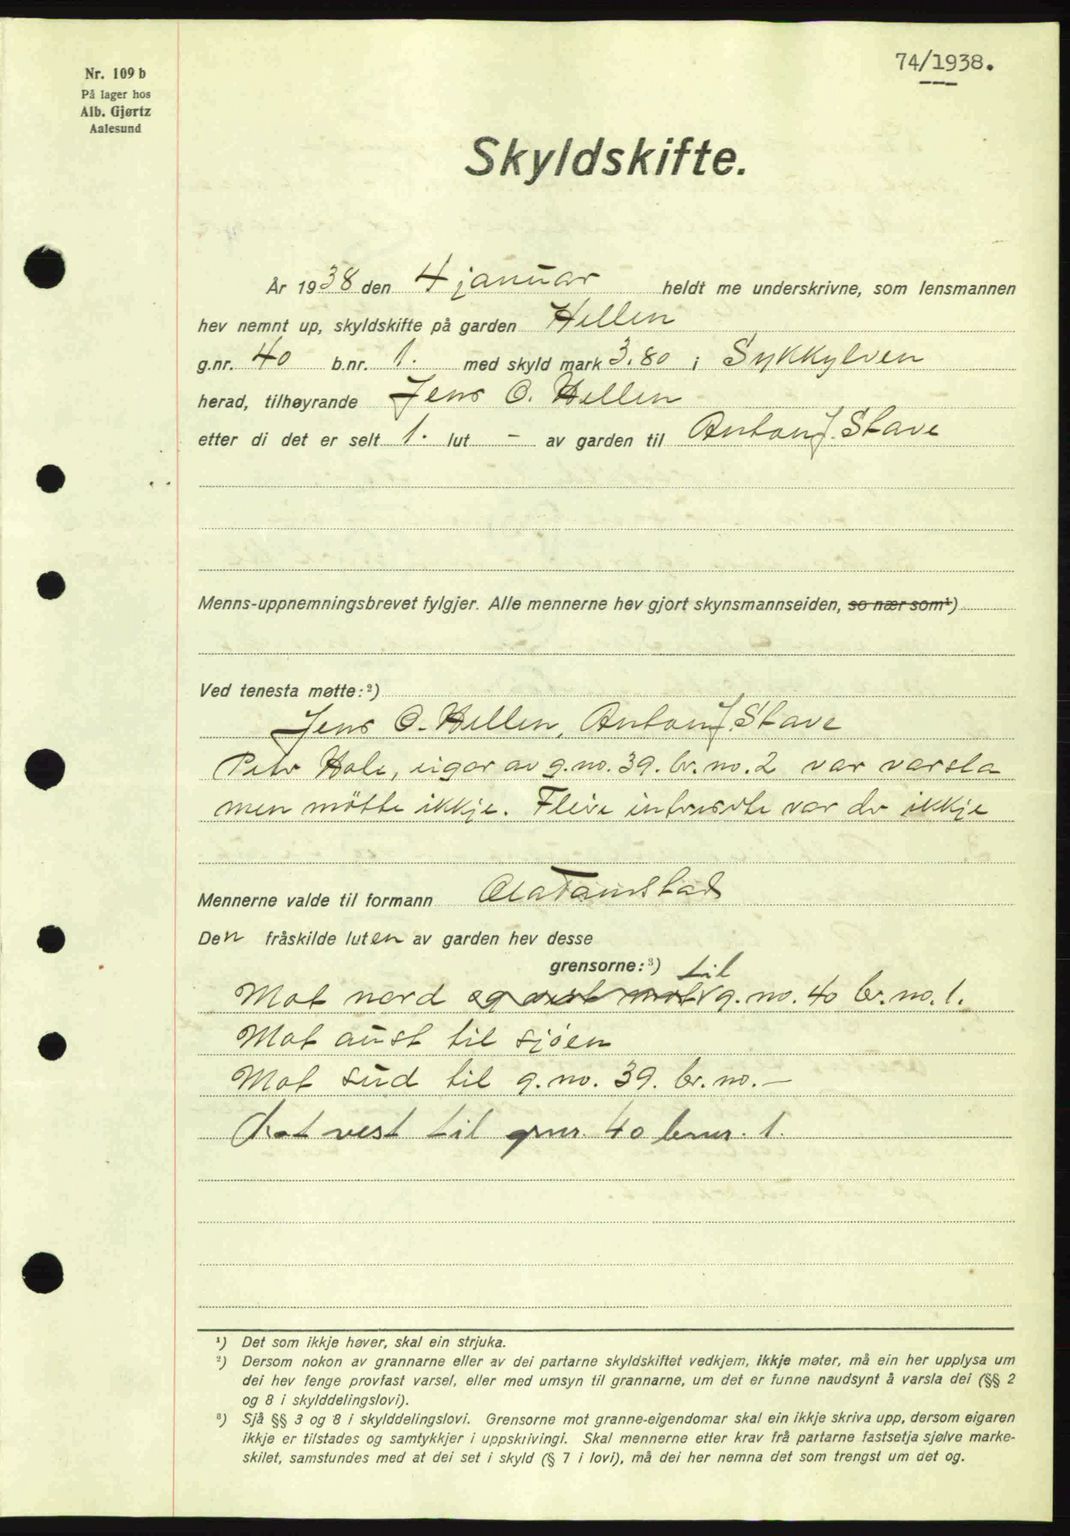 74/1938.
Nr. 109 b
På lager hos
Alb. Gjørtz
Aalesund
Skyldskifte.
År 1938 den 4 januar heldt me underskrivne, som lensmannen
hev nemnt up, skyldskifte på garden Hellen
g.nr. 40 b.nr. 1. med skyld mark 3.80 i Sykkylven
herad, tilhøyrande Jens O. Hellen
etter di det er selt 1. lut - av garden til Anton J. Stave
Menns-uppnemningsbrevet fylgjer. Alle mennerne hev gjort skynsmannseiden, so nær som¹)
Ved tenesta møtte:²)
Jens O. Hellen, Anton J. Stave
Petr Hole, eigar av g.no. 39. br.no. 2 var varsla
men mötte ikkje. Fleire intreserte var der ikkje
Mennerne valde til formann Ola Tandstad
Den fråskilde luten av garden hev desse
grensorne:³)
Mot nord og aust mot til g.no. 40 br.no. 1.
Mot aust til sjøen
Mot sud til g.no. 39. br.no. —
Mot vest til gnr. 40 bnr. 1.
¹) Det som ikkje høver, skal ein strjuka.
²) Dersom nokon av grannarne eller av dei partarne skyldskiftet vedkjem, ikkje møter, må ein her upplysa um
dei hev fenge provfast varsel, eller med umsyn til grannarne, um det er funne naudsynt å varsla dei (§§ 2
og 8 i skylddelingslovi).
³) Sjå §§ 3 og 8 i skylddelingslovi. Grensorne mot granne-eigendomar skal ein ikkje skriva upp, dersom eigaren
ikkje er tilstades og samtykkjer i uppskrivingi. Skal mennerne etter krav frå partarne fastsetja sjølve marke-
skilet, samstundes med at dei set i skyld (§ 7 i lovi), må dei her nemna det som trengst um det og.